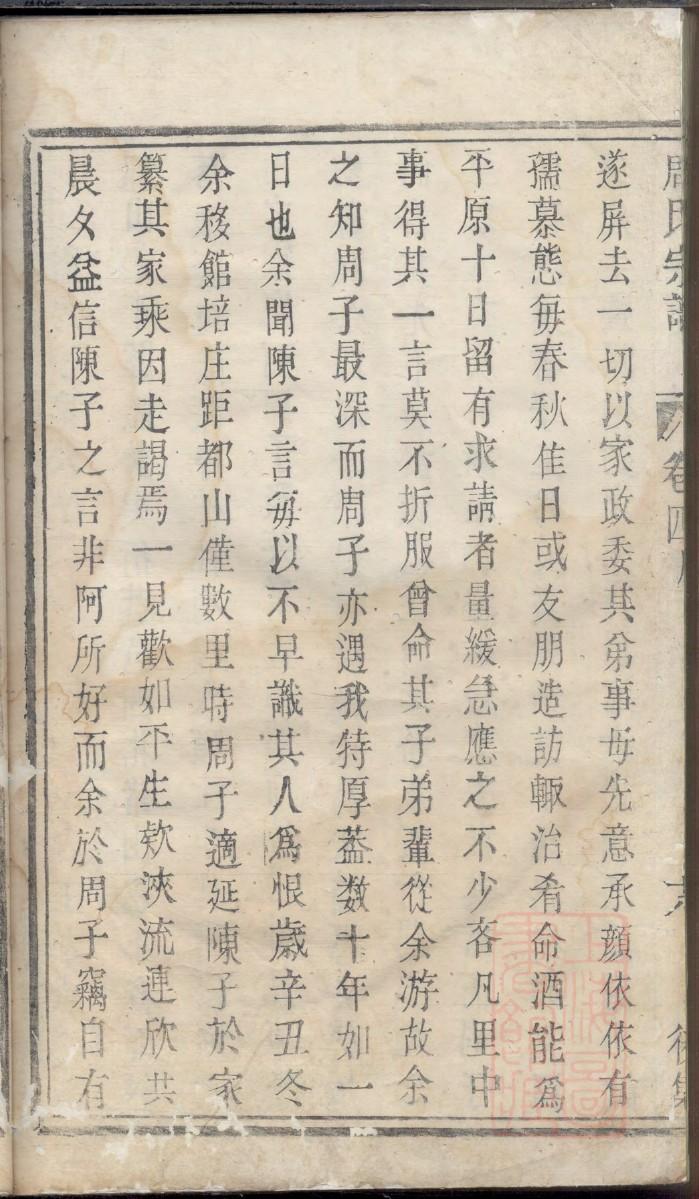 周氏宗譜 卷四 六
遂屏去一切以家政委其弟事母先意承顏依依有
孺慕態毎春秋佳日或友朋造訪輙治肴命酒能爲
平原十日留有求請者量緩急應之不少吝凡里中
事得其一言莫不折服曾命其子弟輩從余游故余
之知周子最深而周子亦遇我特厚葢数十年如一
日也余聞陳子言毎以不早識其人爲恨歲辛丑冬
余移館培庄距都山僅數里時周子適延陳子於家
纂其家乘因走謁焉一見歡如平生欵浹流連欣共
晨夕益信陳子之言非阿所好而余於周子竊自有